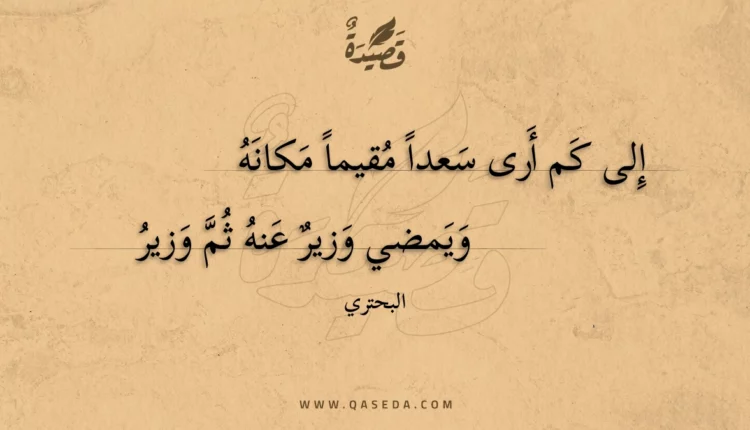 قَصِيدَةٌ
إِلى كَم أَرى سَعداً مُقيماً مَكانَهُ
وَيَمضي وَزيرٌ عَنهُ ثُمَّ وَزيرُ
البحتري
WWW.QASEDA.COM